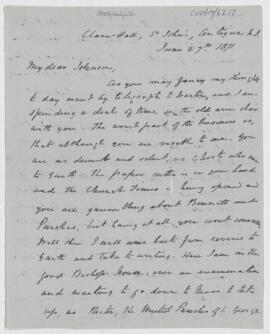 Clare Hall, St John's, Antigua W.I.
June 27th 1871
My dear Johnson,
As you may fancy my thoughts
to day went by telegraph to and I am
spending a deal of time in the old arm chair
with you. The worst part of the business is,
that although you are visible to me, you
are as dumb and silent, as Ghosts who come
to Earth. The paper cutter is in your hand
and the Church Times is being opened and
you are about Bennett and
Purchas, but having it all, you wont
Well then I will come back from
Earth and take to writing. Here I am in the
good Bishop's House, over an examination
and waiting to go down to Nevis to take
up, as Rector, the United Parishes of St George